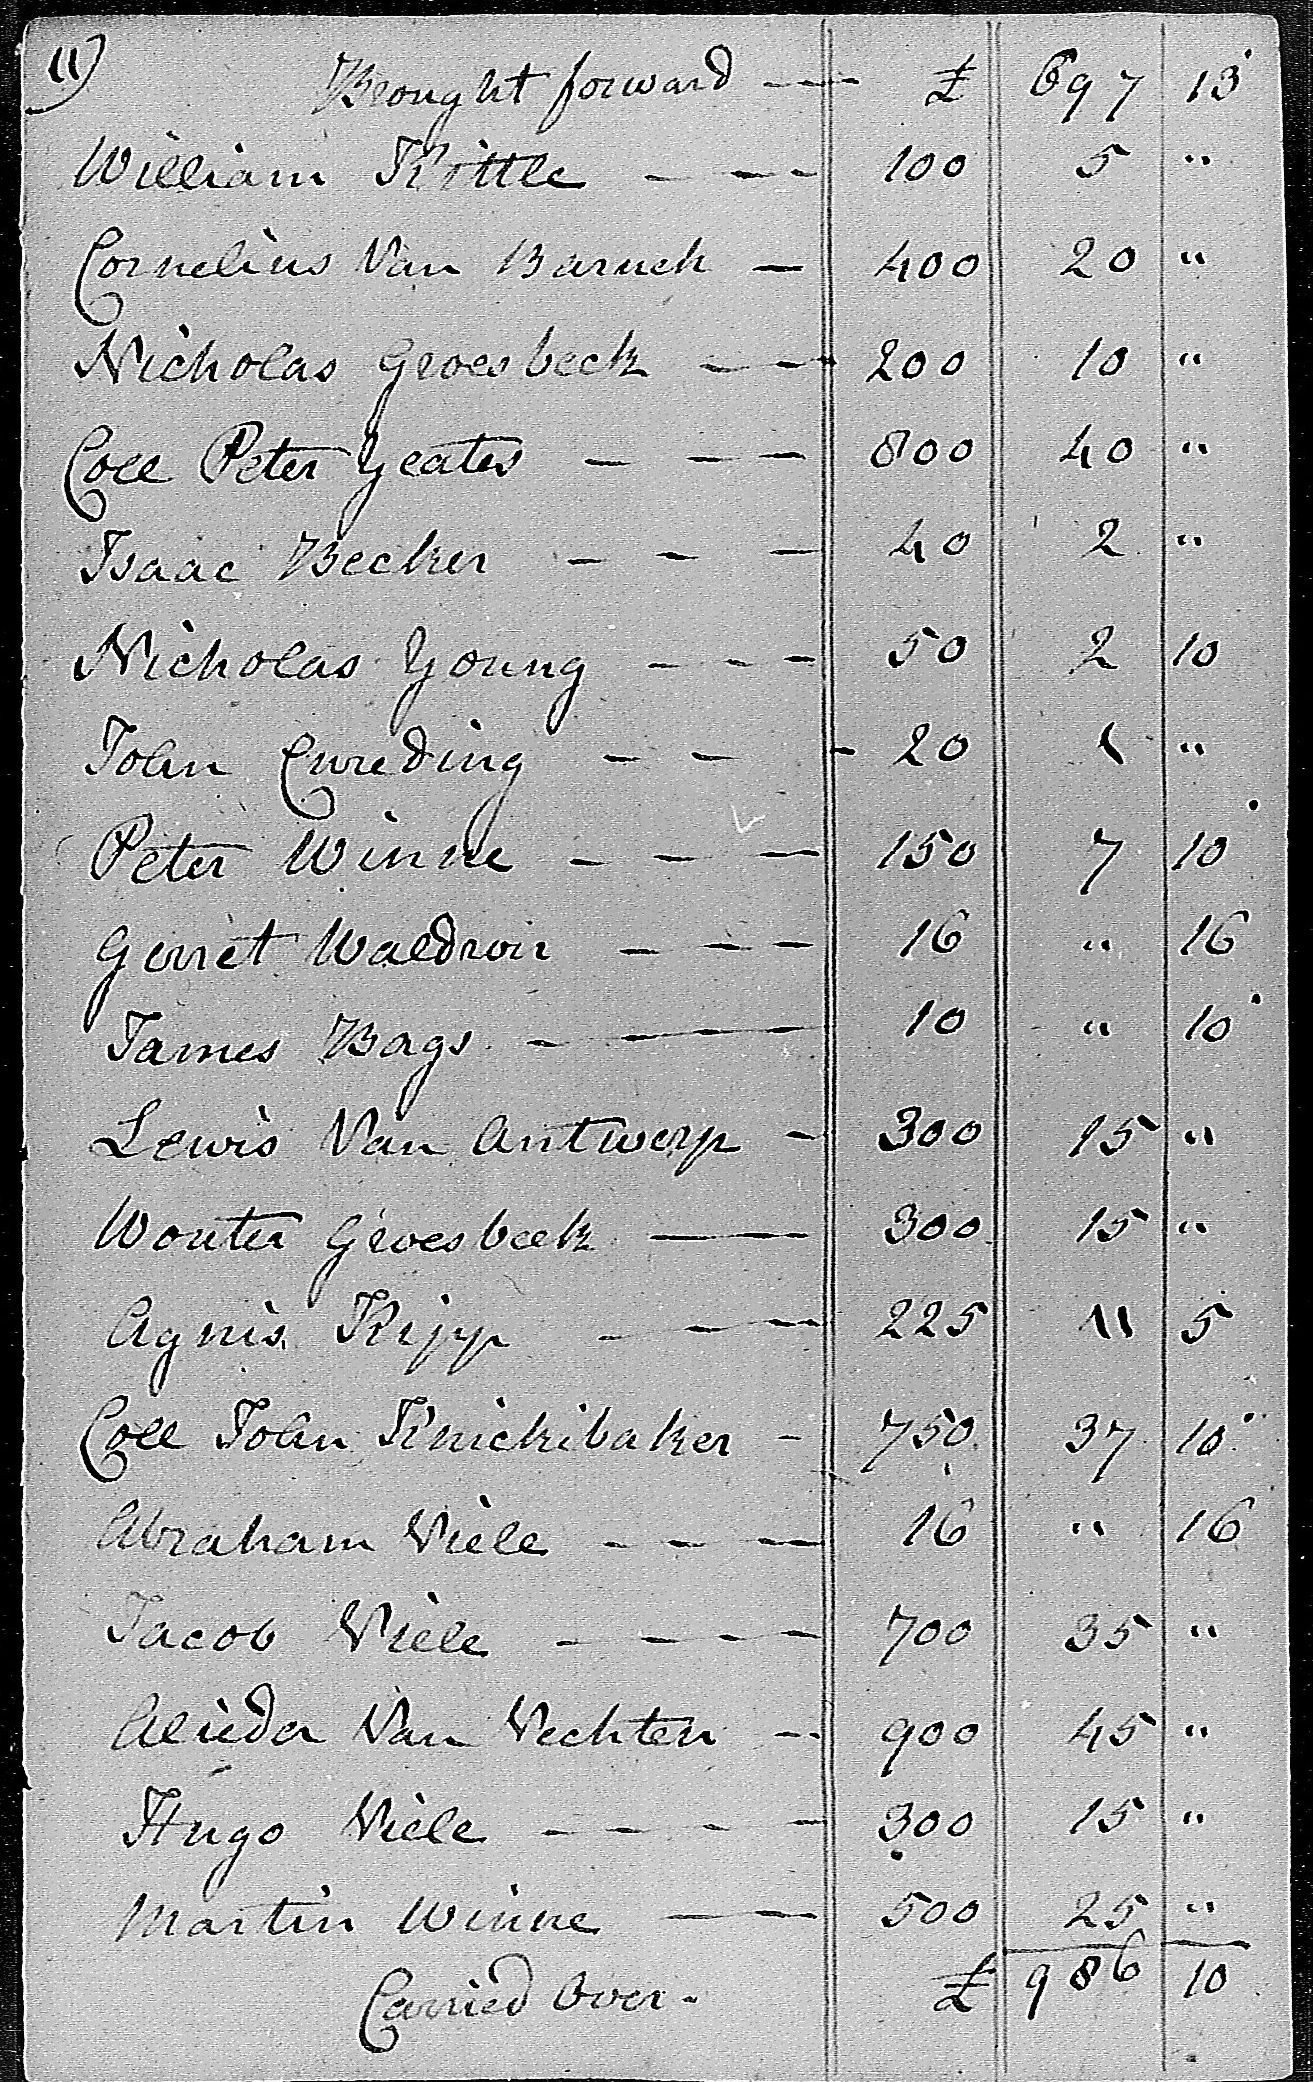 11)
Brought forward — £ 697 13
William Kittle - - - 100 5 "
Cornelius Van Barneh — 400 20 "
Nicholas Groesbeck - - 200 10 "
Coll Peter Yeates - - - 800 40 "
Isaac Becker - - - 40 2 "
Nicholas Young - - - 50 2 10
John Cureding - - - 20 1 "
Peter Winne - - - 150 7 10
Gerret Waldron - - - 16 " 16
James Bags - — 10 " 10
Lewis Van Antwerp - 300 15 "
Wouter Groesbeek — 300 15 "
Agnis Kipp - - - 225 11 5
Coll John Knickibaker - 750 37 10
Abraham Viele - - - 16 " 16
Jacob Viele - - - - 700 35 "
Alieda Van Vechten - 900 45 "
Hugo Viele - - - - 300 15 "
Martin Winne — 500 25 "
Carried Over - £ 986 10